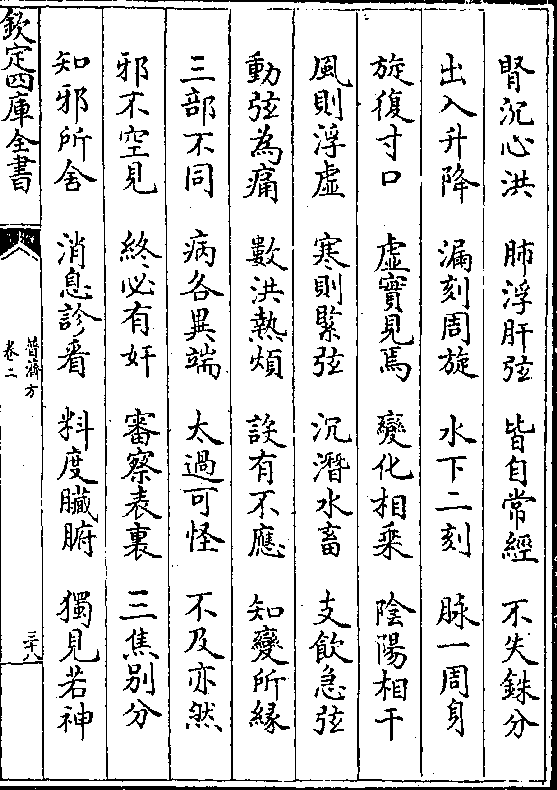 腎沉心洪 肺浮肝弦 皆自常經 不失銖分
出入升降 漏刻周旋 水下二刻 脉一周身
旋復寸口 虛實見焉 變化相乘 陰陽相干
風則浮虛 寒則緊弦 沉潛水畜 支飲急弦
動弦為痛 數洪熱煩 設有不應 知變所緣
三部不同 病各異端 太過可怪 不及亦然
邪不空見 終必有奸 審察表裏 三焦别分
知邪所舍 消息診看 料度臟腑 獨見若神
欽定四庫全書
普濟方
卷二
三十八